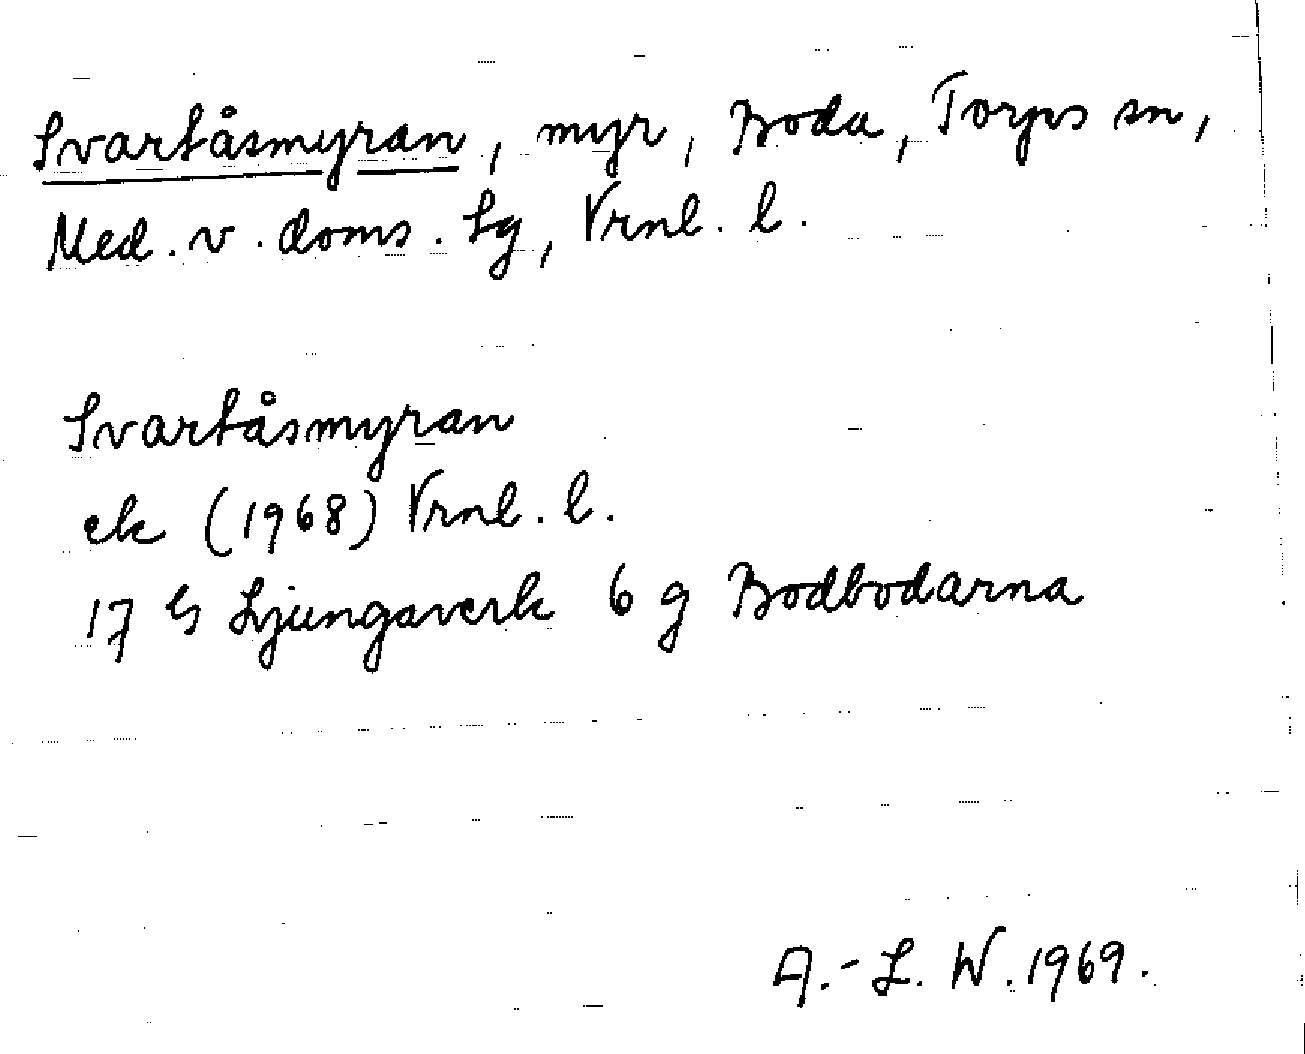 Svartåsmyran, myr, Boda, Torps sn,
Med. v. doms. lg, Vrnl. l.
Svartåsmyran
ek (1968) Vrnl. l.
17 G Ljungaverk 6 g Bodbodarna
A.-L. W. 1969.